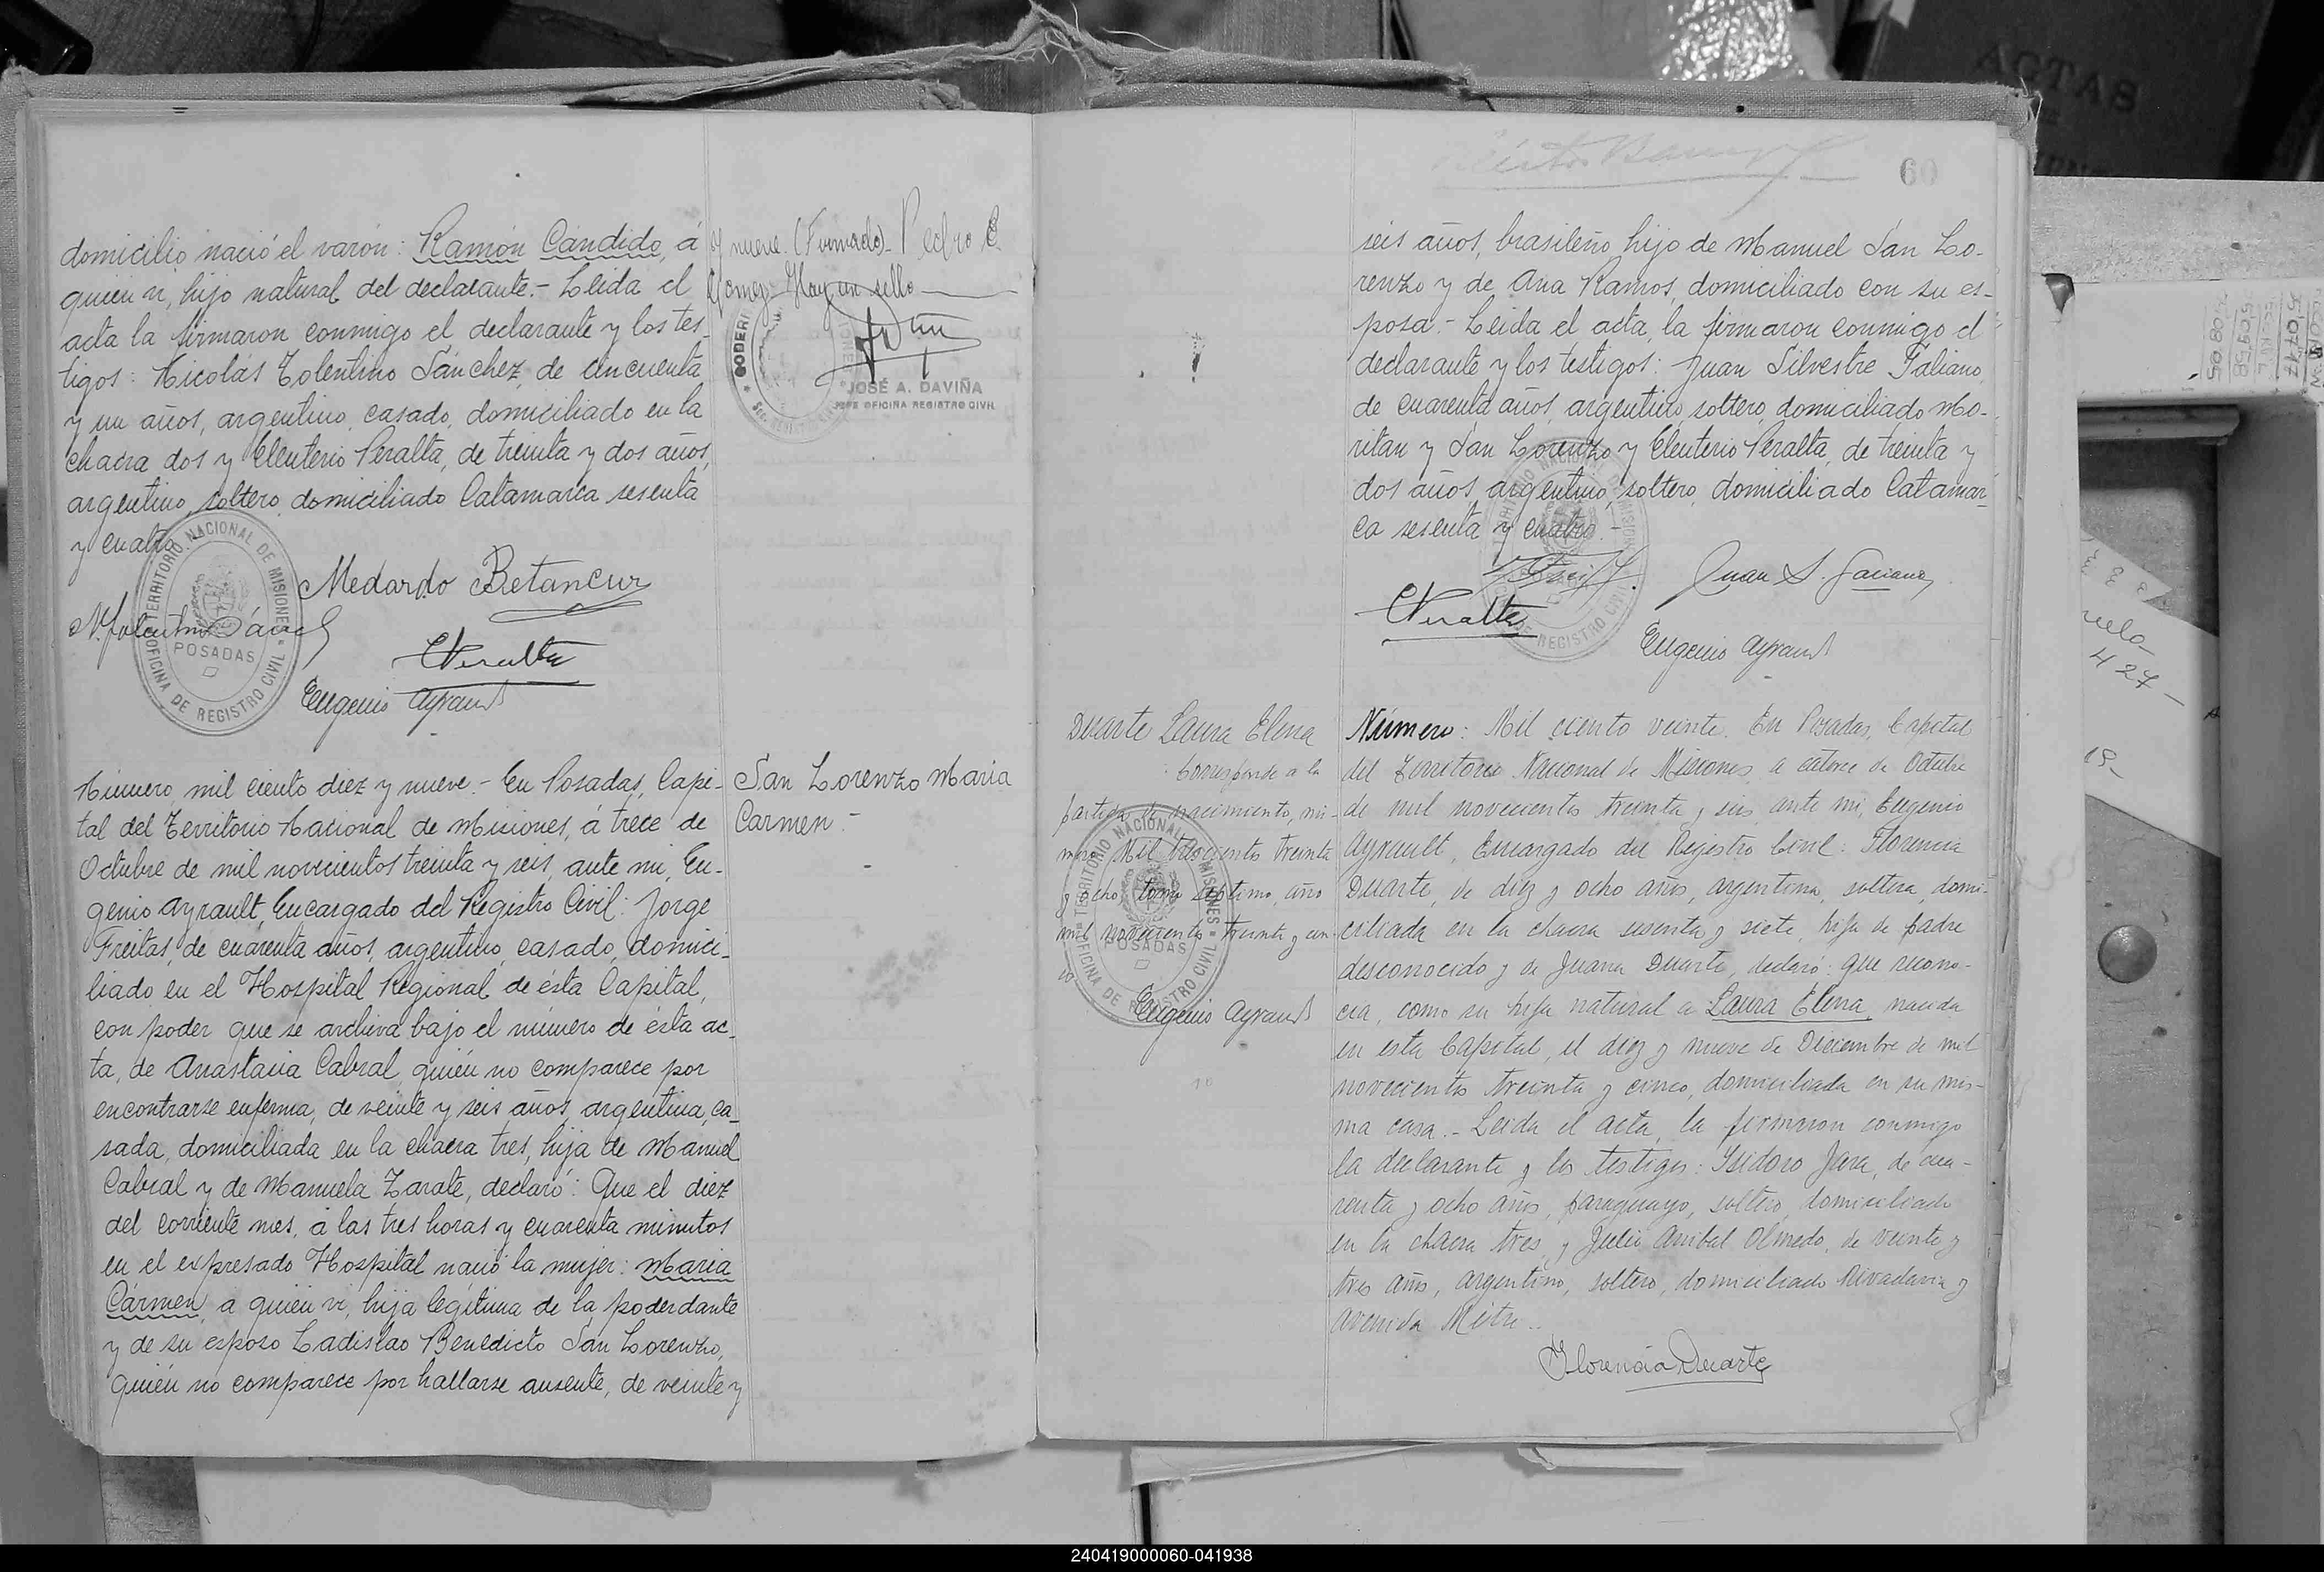 domicilio nació el varón: Ramón Cándido, á
quien vi, hijo natural del declarante.- Leida el
acta la firmaron conmigo el declarante y los tes-
tigos: Nicolás Tolentino Sánchez, de cincuenta
y un años, argentino, casado, domiciliado en la
chacra dos y Eleuterio Peralta, de treinta y dos años,
argentino, soltero, domiciliado Catamarca sesenta
y cuatro.-
Medardo Betancur
N. Tolentino Sánchez
EPeralta
Eugenio Ayrault
TERRITORIO NACIONAL DE MISIONES
POSADAS
OFICINA DE REGISTRO CIVIL
y nueve. (Firmado)- Pedro C.
Gomez- Hay un sello
JOSÉ A. DAVIÑA
JEFE OFICINA REGISTRO CIVIL
Número mil ciento diez y nueve.- En Posadas, Capi-
tal del Territorio Nacional de Misiones, á trece de
Octubre de mil novecientos treinta y seis, ante mi, Eu-
genio Ayrault, Encargado del Registro Civil: Jorge
Freitas, de cuarenta años, argentino, casado, domici-
liado en el Hospital Regional de ésta Capital,
con poder que se archiva bajo el número de ésta ac-
ta, de Anastacia Cabral, quién no comparece por
encontrarse enferma, de veinte y seis años, argentina, ca-
sada, domiciliada en la chacra tres, hija de Manuel
Cabral y de Manuela Zarate, declaró: Que el diez
del corriente mes, á las tres horas y cuarenta minutos
en el expresado Hospital nació la mujer: Maria
Cármen, a quién vi, hija legítima de la poderdante
y de su esposo Ladislao Benedicto San Lorenzo,
quién no comparece por hallarse ausente, de veinte y
San Lorenzo Maria
Carmen.-
60
seis años, brasileño, hijo de Manuel San Lo-
renzo y de Ana Ramos, domiciliado con su es-
posa.- Leida el acta, la firmaron conmigo el
declarante y los testigos: Juan Silvestre Galiano,
de cuarenta años, argentino, soltero, domiciliado Mo-
ritan y San Lorenzo y Eleuterio Peralta, de treinta y
dos años, argentino, soltero, domiciliado Catamar-
ca sesenta y cuatro.-
Juan S. Galiano
EPeralta
Eugenio Ayrault
Duarte Laura Elena
Corresponde a la
partida de nacimiento, nú-
mero Mil trescientos treinta
y ocho, tomo septimo, año
mil novecientos treinta y cin-
co
Eugenio Ayrault
TERRITORIO NACIONAL DE MISIONES
POSADAS
OFICINA DE REGISTRO CIVIL
Número: Mil ciento veinte. En Posadas, Capital
del Territorio Nacional de Misiones, a catorce de Octubre
de mil novecientos treinta y seis, ante mi, Eugenio
Ayrault, Encargado del Registro Civil: Florencia
Duarte, de diez y ocho años, argentina, soltera, domi-
ciliada en la chacra sesenta y siete, hija de padre
desconocido y de Juana Duarte, declaró: que recono-
cia, como su hija natural a Laura Elena, nacida
en esta Capital, el diez y nueve de Diciembre de mil
novecientos treinta y cinco, domiciliada en su mis-
ma casa.- Leida el acta, la firmaron conmigo
la declarante y los testigos: Isidoro Jara, de cua-
renta y ocho años, paraguayo, soltero, domiciliado
en la chacra tres y Julio Anibal Olmedo, de veinte y
tres años, argentino, soltero, domiciliado Rivadavia y
Avenida Mitre..
Florencia Duarte
ACTAS
240419000060-041938